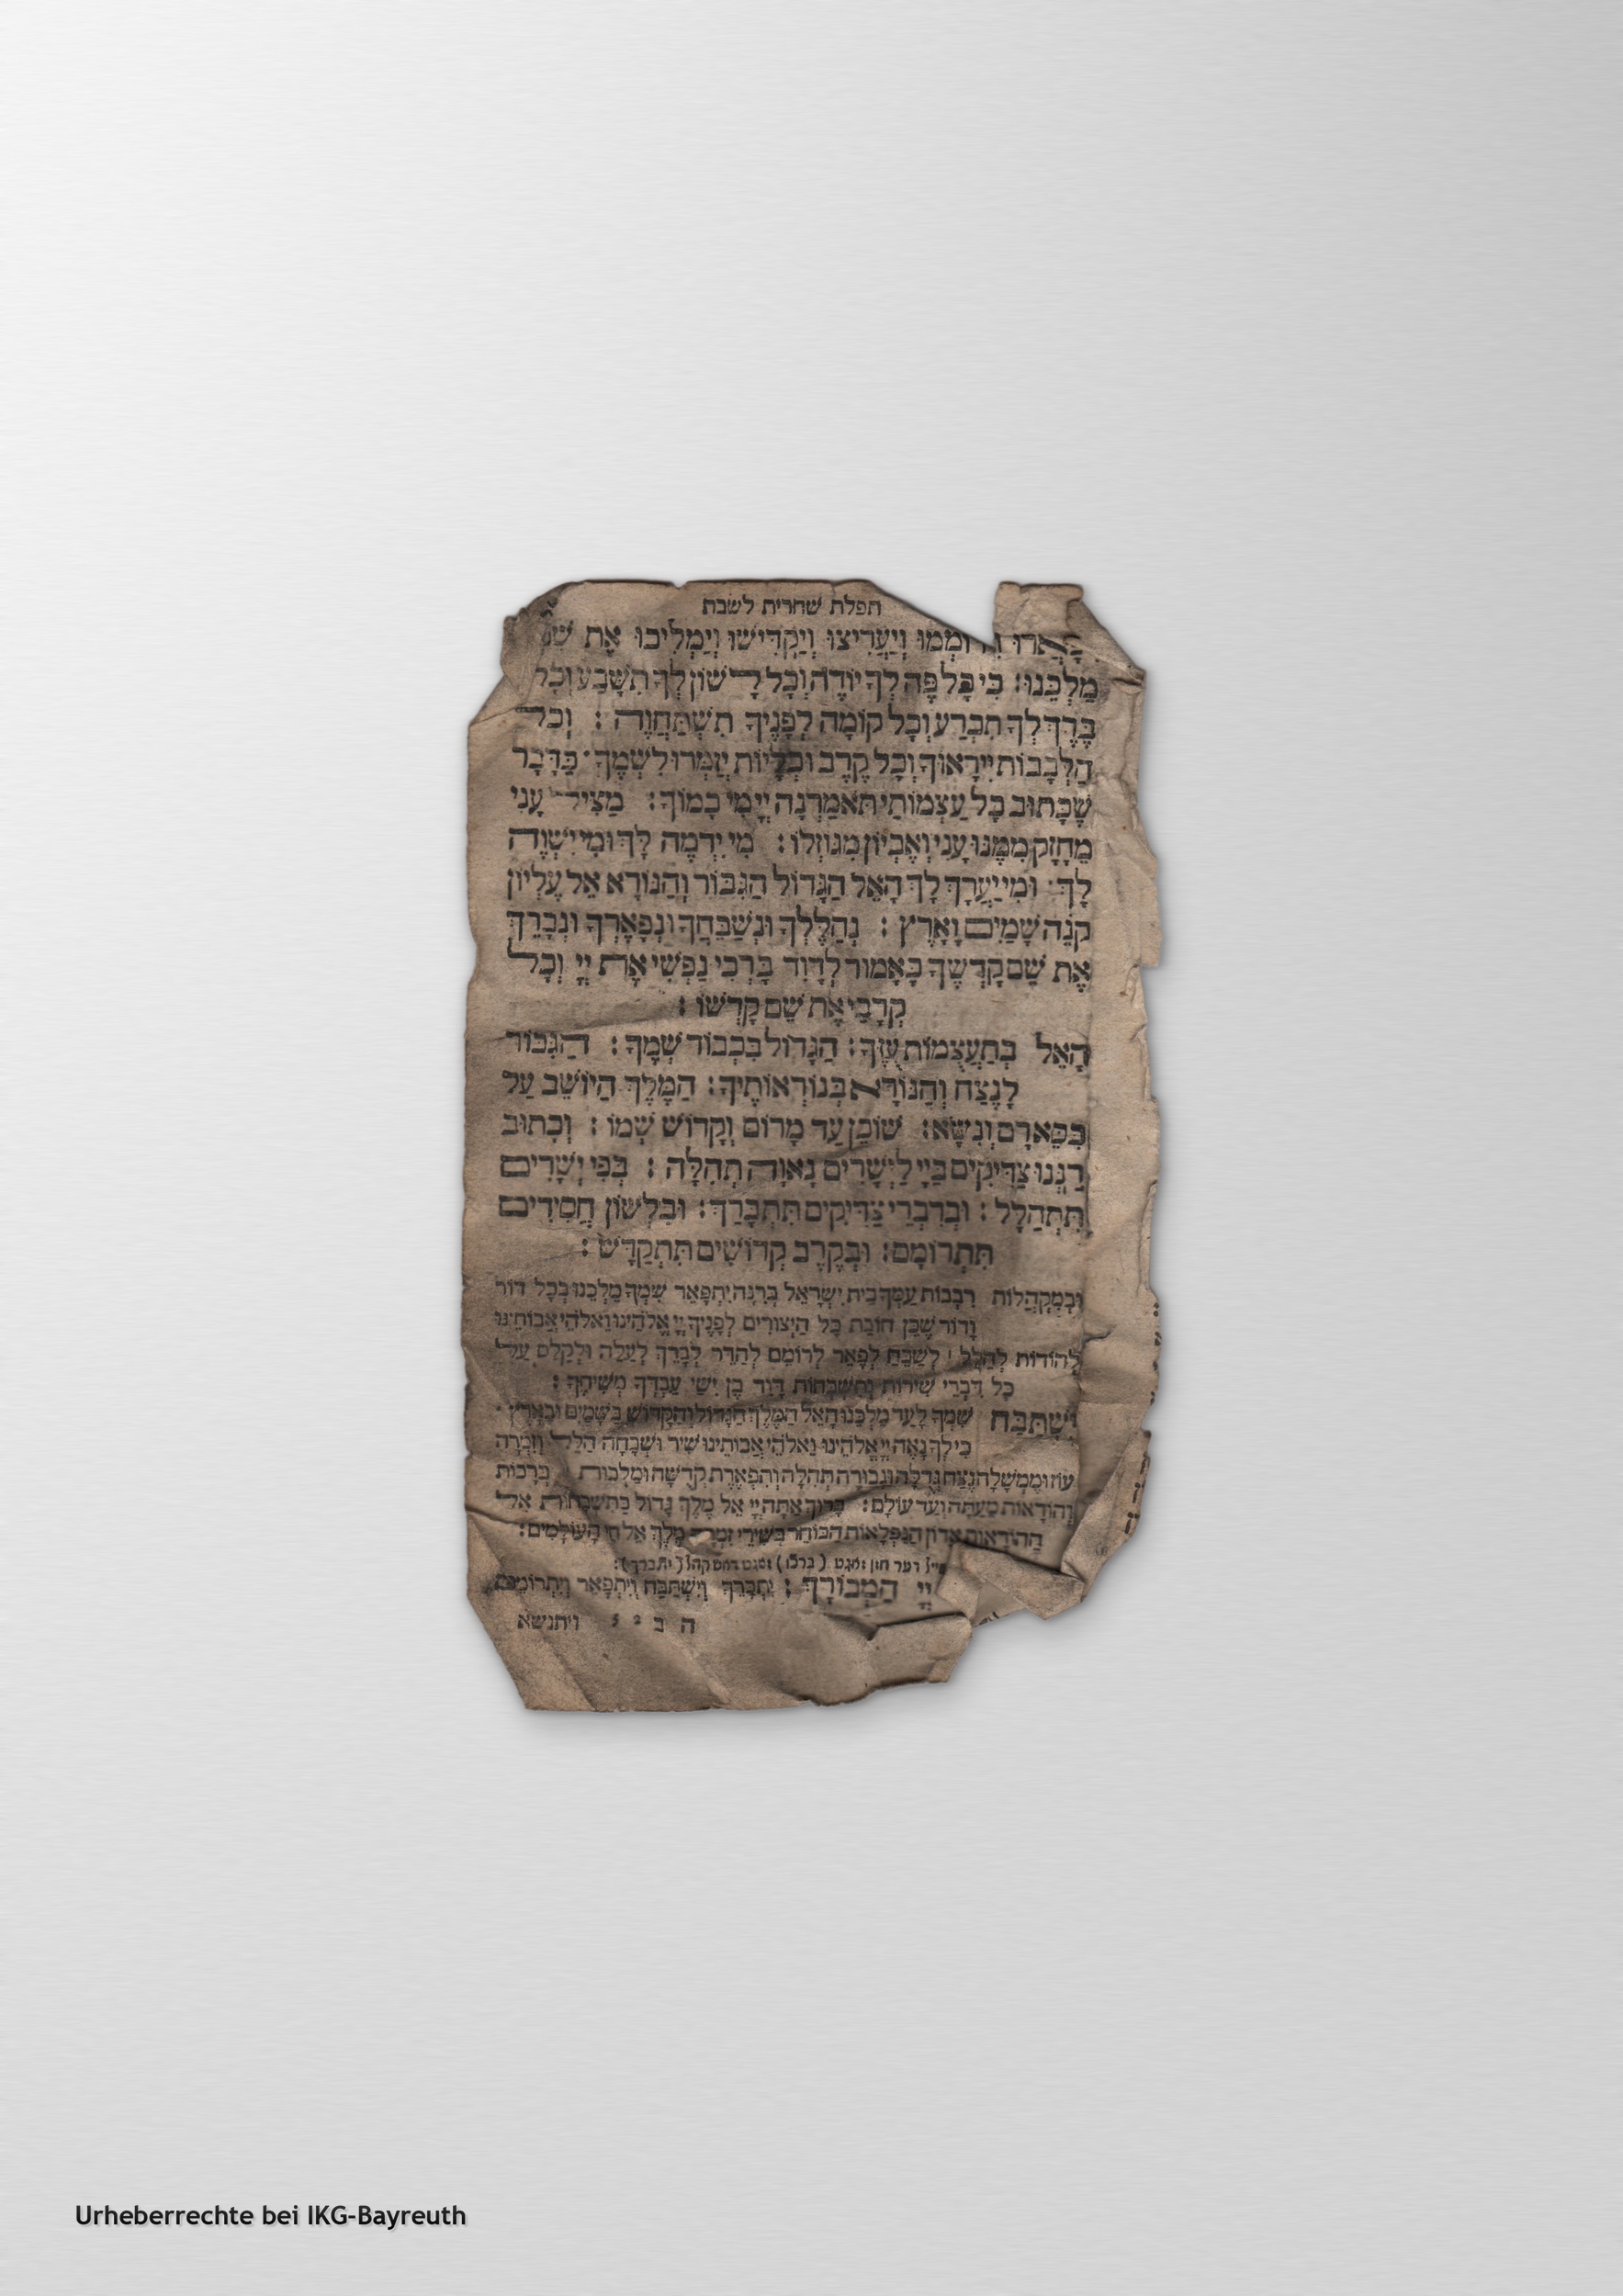 תפלת שחרית לשבת
וִירוֹמְמוּ וְיַעֲרִיצוּ וְיַקְדִּישׁוּ וְיַמְלִיכוּ אֶת
מַלְכֵּנוּ: כִּי כָל פֶּה לְךָ יוֹדֶה וְכָל לָשׁוֹן לְךָ תִשָּׁבַע וְכָל
בֶּרֶךְ לְךָ תִכְרַע וְכָל קוֹמָה לְפָנֶיךָ תִשְׁתַּחֲוֶה : וְכָל
הַלְּבָבוֹת יִירָאוּךָ וְכָל קֶרֶב וּכְלָיוֹת יְזַמְּרוּ לִשְׁמֶךָ · כַּדָּבָר
שֶׁכָּתוּב כָּל עַצְמוֹתַי תֹּאמַרְנָה יְיָ מִי כָמוֹךָ : מַצִּיל עָנִי
מֵחָזָק מִמֶּנּוּ עָנִי וְאֶבְיוֹן מִגּוֹזְלוֹ : מִי יִדְמֶה לָּךְ וּמִי יִשְׁוֶה
לָּךְ · וּמִי יַעֲרָךְ לָךְ הָאֵל הַגָּדוֹל הַגִּבּוֹר וְהַנּוֹרָא אֵל עֶלְיוֹן
קֹנֵה שָׁמַיִם וָאָרֶץ : נְהַלֶּלְךָ וּנְשַׁבֵּחֲךָ וּנְפָאֶרְךָ וּנְבָרֵךְ
אֶת שֵׁם קָדְשֶׁךָ כָּאָמוּר לְדָוִד בָּרְכִי נַפְשִׁי אֶת יְיָ וְכָל
קְרָבַי אֶת שֵׁם קָדְשׁוֹ :
הָאֵל בְּתַעֲצֻמוֹת עֻזֶּךָ : הַגָּדוֹל בִּכְבוֹד שְׁמֶךָ : הַגִּבּוֹר
לָנֶצַח וְהַנּוֹרָא בְּנוֹרְאוֹתֶיךָ : הַמֶּלֶךְ הַיּוֹשֵׁב עַל
כִּסֵּא רָם וְנִשָּׂא : שׁוֹכֵן עַד מָרוֹם וְקָדוֹשׁ שְׁמוֹ : וְכָתוּב
רַנְּנוּ צַדִּיקִים בַּיְיָ לַיְשָׁרִים נָאוָה תְהִלָּה : בְּפִי יְשָׁרִים
תִּתְהַלָּל : וּבְדִבְרֵי צַדִּיקִים תִּתְבָּרַךְ : וּבִלְשׁוֹן חֲסִידִים
תִּתְרוֹמָם : וּבְקֶרֶב קְדוֹשִׁים תִּתְקַדָּשׁ :
וּבְמַקְהֲלוֹת רִבְבוֹת עַמְּךָ בֵּית יִשְׂרָאֵל בְּרִנָּה יִתְפָּאֵר שִׁמְךָ מַלְכֵּנוּ בְּכָל דּוֹר
וָדוֹר שֶׁכֵּן חוֹבַת כָּל הַיְצוּרִים לְפָנֶיךָ יְיָ אֱלֹהֵינוּ וֵאלֹהֵי אֲבוֹתֵינוּ
לְהוֹדוֹת לְהַלֵּל לְשַׁבֵּחַ לְפָאֵר לְרוֹמֵם לְהַדֵּר לְבָרֵךְ לְעַלֵּה וּלְקַלֵּס עַל
כָּל דִּבְרֵי שִׁירוֹת וְתִשְׁבְּחוֹת דָּוִד בֶּן יִשַׁי עַבְדְּךָ מְשִׁיחֶךָ :
יִשְׁתַּבַּח שִׁמְךָ לָעַד מַלְכֵּנוּ הָאֵל הַמֶּלֶךְ הַגָּדוֹל וְהַקָּדוֹשׁ בַּשָּׁמַיִם וּבָאָרֶץ ·
כִּי לְךָ נָאֶה יְיָ אֱלֹהֵינוּ וֵאלֹהֵי אֲבוֹתֵינוּ שִׁיר וּשְׁבָחָה הַלֵּל וְזִמְרָה
עוֹז וּמֶמְשָׁלָה נֶצַח גְּדֻלָּה וּגְבוּרָה תְּהִלָּה וְתִפְאֶרֶת קְדֻשָּׁה וּמַלְכוּת בְּרָכוֹת
וְהוֹדָאוֹת מֵעַתָּה וְעַד עוֹלָם : בָּרוּךְ אַתָּה יְיָ אֵל מֶלֶךְ גָּדוֹל בַּתִּשְׁבָּחוֹת אֵל
הַהוֹדָאוֹת אֲדוֹן הַנִּפְלָאוֹת הַבּוֹחֵר בְּשִׁירֵי זִמְרָה מֶלֶךְ אֵל חֵי הָעוֹלָמִים :
דער חזן זאגט (ברכו) זאגט דאס קהל (יתברך) :
יְיָ הַמְבוֹרָךְ : יִתְבָּרֵךְ וְיִשְׁתַּבַּח וְיִתְפָּאֵר וְיִתְרוֹמֵם
ה ב 2 5 ויתנשא
Urheberrechte bei IKG-Bayreuth